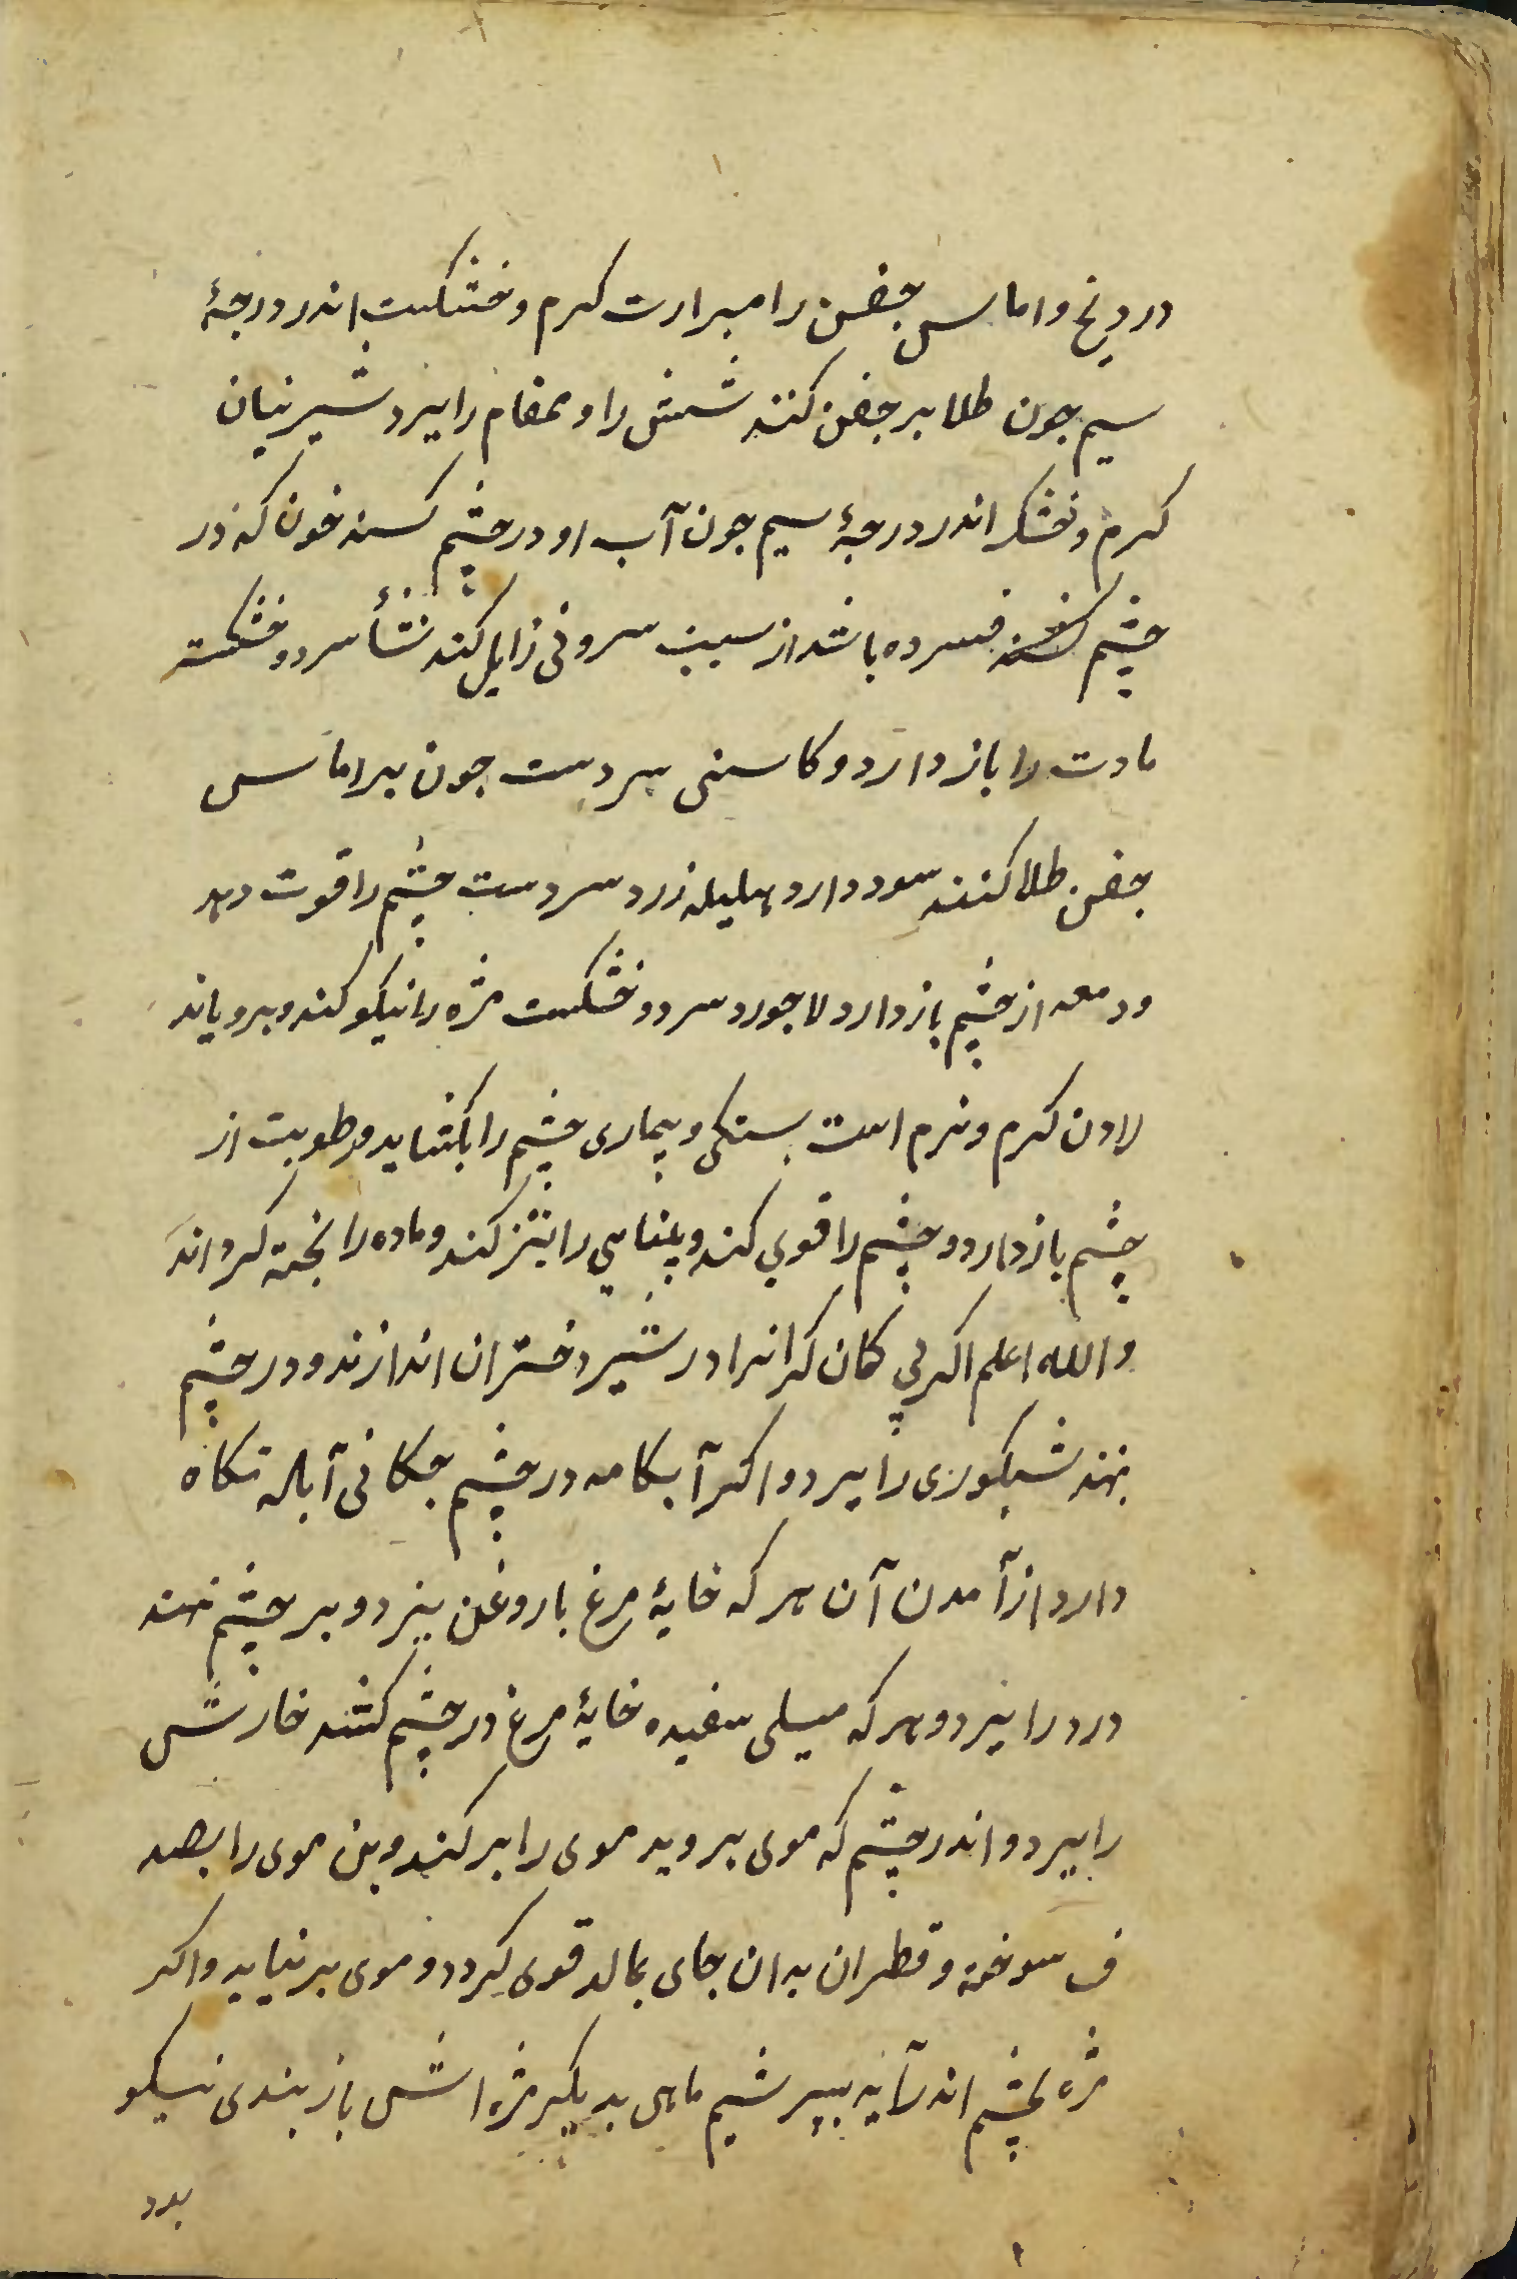 درد نخ و اماس جفن را مرارت کرم و خشکست اندر درجهٔ
سیم جون طلا بر جفن کنند شپش را و قمقام را ببرد شیر نیان
کرم و خشک اندر درجهٔ سیم جون آب او در چشم کسند خون که در
چشم فسرده باشد از سبب سروفی زایل کند نشأ سرد و خشکست
مادت را باز دارد و کاسنی سردست جون بر اماس
جفن طلا کنند سود دارد هلیله زرد سردست چشم را قوت دهد
و دمعه از چشم باز دارد لاجورد سرد و خشکست مژه را نیکو کند و برویاند
لادن کرم و نرم است بستکی و بیماری چشم را بکشاید و رطوبت از
چشم باز دارد و چشم را قوي کند و بینایي را تیز کند و ماده را پخته کرداند
والله اعلم اکر پی کمان کرانرا در شیر دختران اندازند و در چشم
نهند شبکوری را ببرد و اکر آبکامه در چشم جکانی آبله نکاه
دارد از آمدن آن هر که خایهٔ مرغ با روغن بپزد و بر چشم نهند
درد را ببرد و هر که میلی سفیده خایهٔ مرغ در چشم کشند خارش
را ببرد و اندر چشم که موی بروید موی را برکنند و بن موی را بصد
ف سوخته و قطران بدان جای بمالد قوی کردد و موی برنیاید و اکر
مژه بچشم اندر آید بسریشم ماهی بدیکر مژه اش باز بندی نیکو
بود